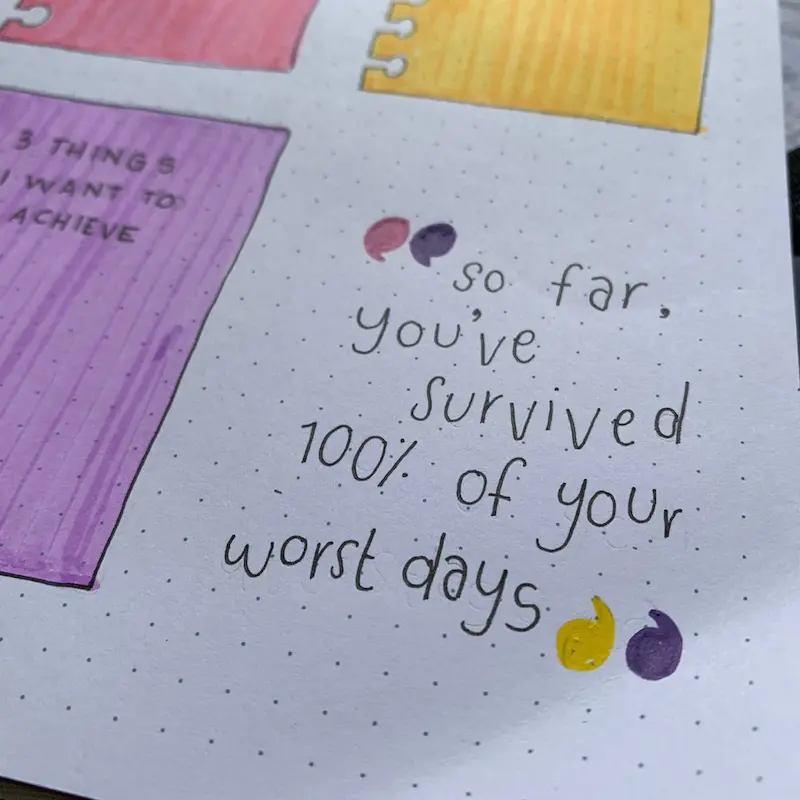 3 THINGS
I WANT TO
ACHIEVE
so far,
you've
survived
100% of your
worst days